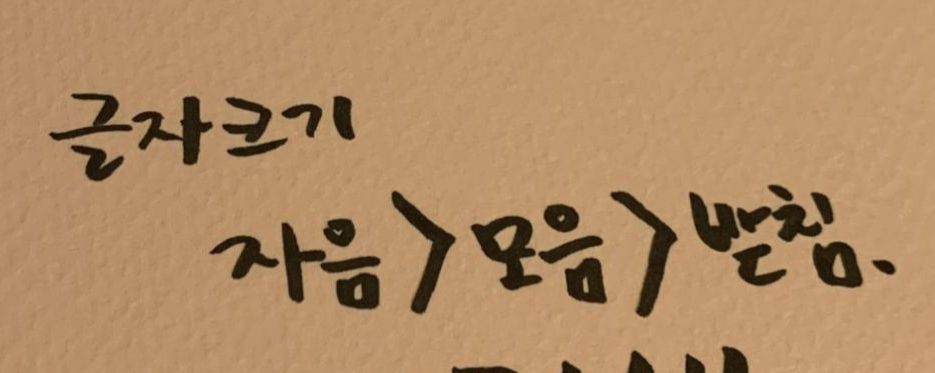 글자크기
자음>모음>받침.